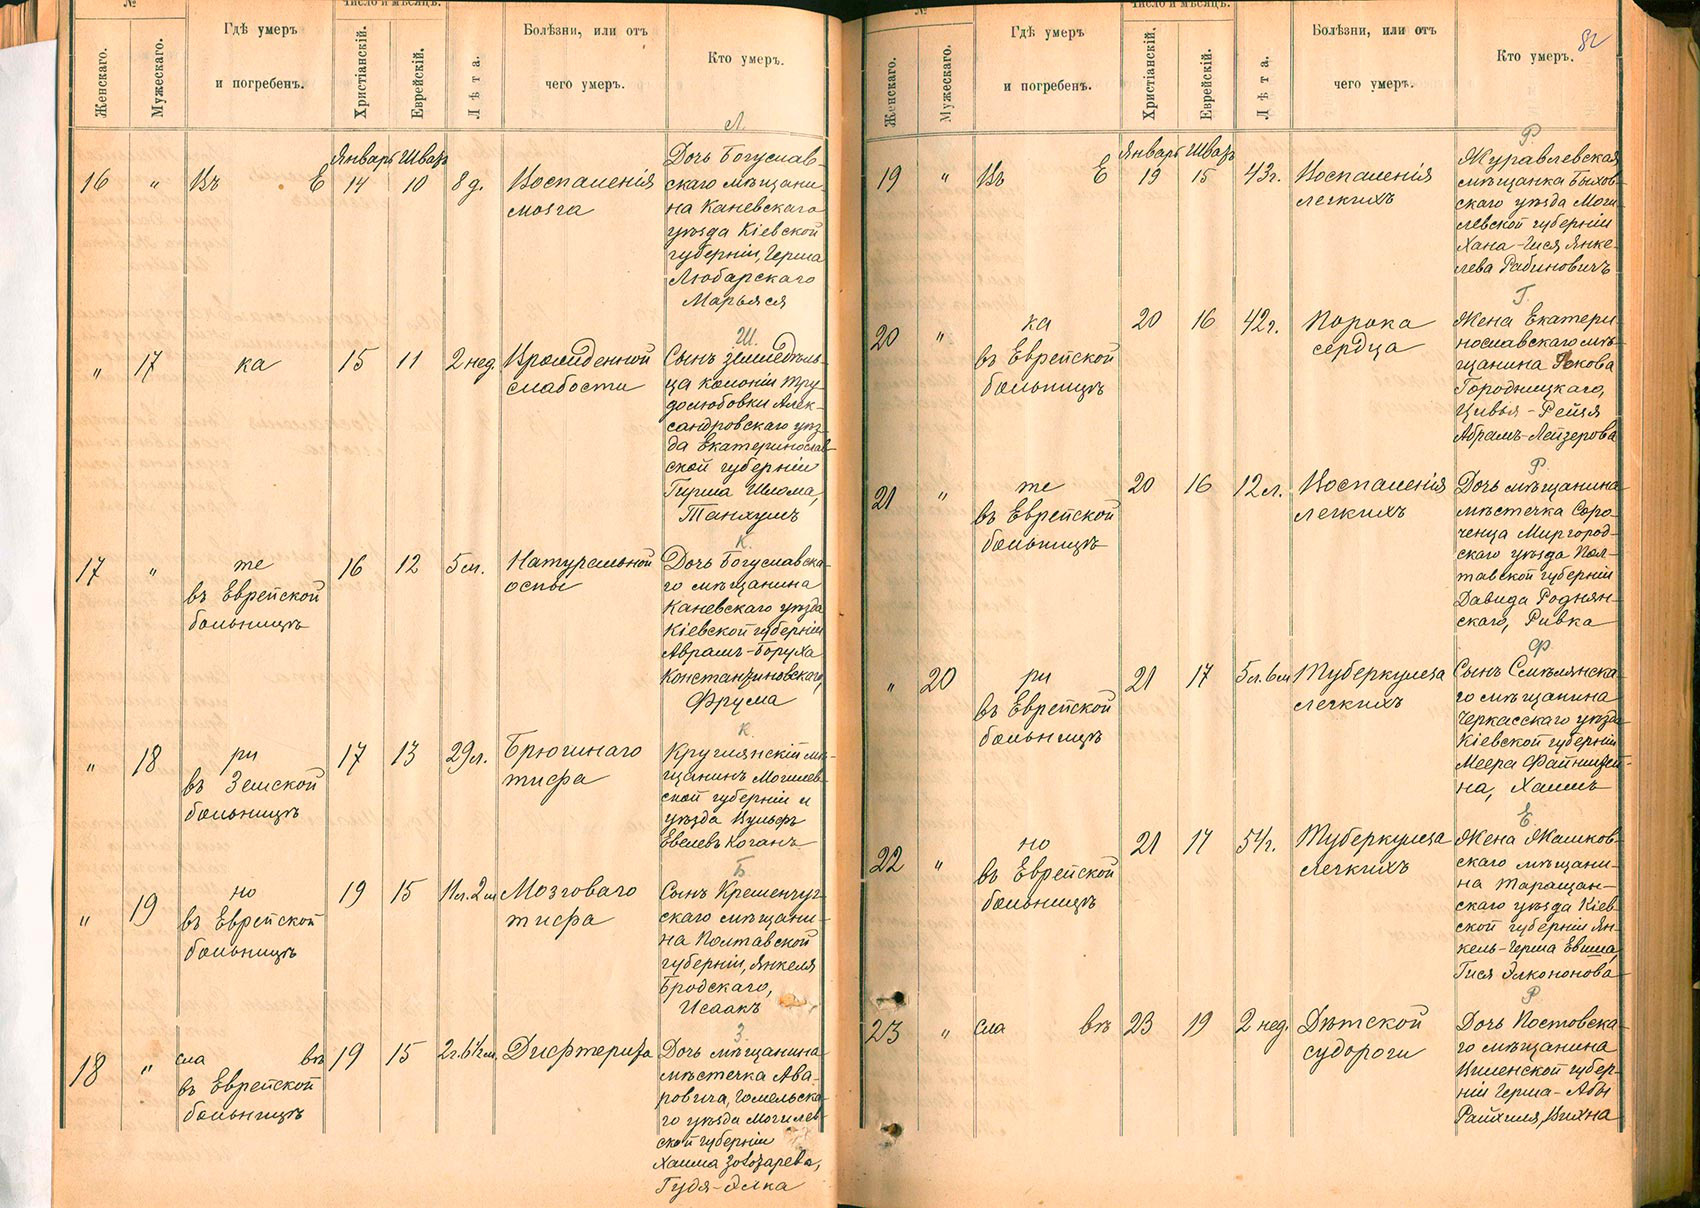 №
Число и мѣсяцъ.
Женскаго.
Мужескаго.
Гдѣ умеръ
и погребенъ.
Христіанскій.
Еврейскій.
Лѣта.
Болѣзни, или отъ
чего умеръ.
Кто умеръ.
Январь Шватъ
Л.
16 " Въ Е 14 10 8 д.
Воспаленія
мозга
Дочь Богуслав-
скаго мѣщани-
на Каневскаго
уѣзда Кіевской
губерніи, Герша
Любарскаго
Марьяся
Ш.
" 17 ка 15 11 2 нед.
Врожденной
слабости
Сынъ земледѣль-
ца колоніи Тру-
долюбовки Алек-
сандровскаго уѣз-
да Екатеринослав-
ской губерніи
Гирша Шлома,
Танхумъ
К.
17 " же 16 12 5 м.
въ Еврейской
больницѣ
Натуральной
оспы
Дочь Богуславска-
го мѣщанина
Каневскаго уѣзда
Кіевской губерніи
Аврамъ-Боруха
Константиновскаго,
Фрума
К.
" 18 ри 17 13 29 л.
въ Земской
больницѣ
Брюшнаго
тифа
Круглянскій мѣ-
щанинъ Могилев-
ской губерніи и
уѣзда Вульфъ
Евелевъ Коганъ
Б
" 19 но 19 15 11 л. 2 м.
въ Еврейской
больницѣ
Мозговаго
тифа
Сынъ Кременчуг-
скаго мѣщани-
на Полтавской
губерніи, Янкеля
Бродскаго,
Исаакъ
З.
18 " сла въ 19 15 2 г. 6½ м.
въ Еврейской
больницѣ
Дифтерита
Дочь мѣщанина
мѣстечка
Гомельска-
го уѣзда Могилев-
ской губерніи
Хаима
Гудя-Элка
82
№
Число и мѣсяцъ.
Женскаго.
Мужескаго.
Гдѣ умеръ
и погребенъ.
Христіанскій.
Еврейскій.
Лѣта.
Болѣзни, или отъ
чего умеръ.
Кто умеръ.
Январь Шватъ
Р.
19 " Въ Е 19 15 43 г.
Воспаленія
легкихъ
Журавлевская
мѣщанка Быхов-
скаго уѣзда Моги-
левской губерніи
Хана-Гися Янке-
лева Рабиновичъ
Г.
20 " ка 20 16 42 г.
въ Еврейской
больницѣ
Порока
сердца
Жена Екатери-
нославскаго мѣ-
щанина Якова
Городицкаго,
Цивья-Рейзя
Абрамъ-Лейзерова
Р.
21 " же 20 16 12 л.
въ Еврейской
больницѣ
Воспаленія
легкихъ
Дочь мѣщанина
мѣстечка Соро-
ченца Миргород-
скаго уѣзда Пол-
тавской губерніи
Давида Роднян-
скаго, Ривка
Ф.
" 20 ри 21 17 5 л. 6 м.
въ Еврейской
больницѣ
Туберкулеза
легкихъ
Сынъ Смѣлянска-
го мѣщанина
Черкасскаго уѣзда
Кіевской губерніи
Меера Файнштей-
на, Хаимъ
Е.
22 " но 21 17 54 г.
въ Еврейской
больницѣ
Туберкулеза
легкихъ
Жена Жашков-
скаго мѣщани-
на Таращан-
скаго уѣзда Кіев-
ской губерніи Ян-
кель-Герша Евиша,
Гися Элкононова
Р
23 " сла въ 23 19 2 нед.
Дѣтской
судороги
Дочь Постовска-
го мѣщанина
Виленской губер-
ніи Герша-Абы
Райхеля, Вихна